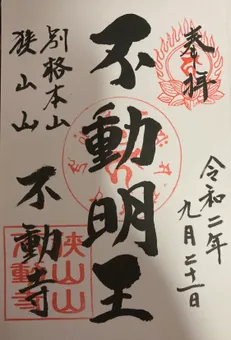 奉拝
令和二年
九月二十一日
不動明王
別格本山
狭山山
不動寺
狭山山
不動寺